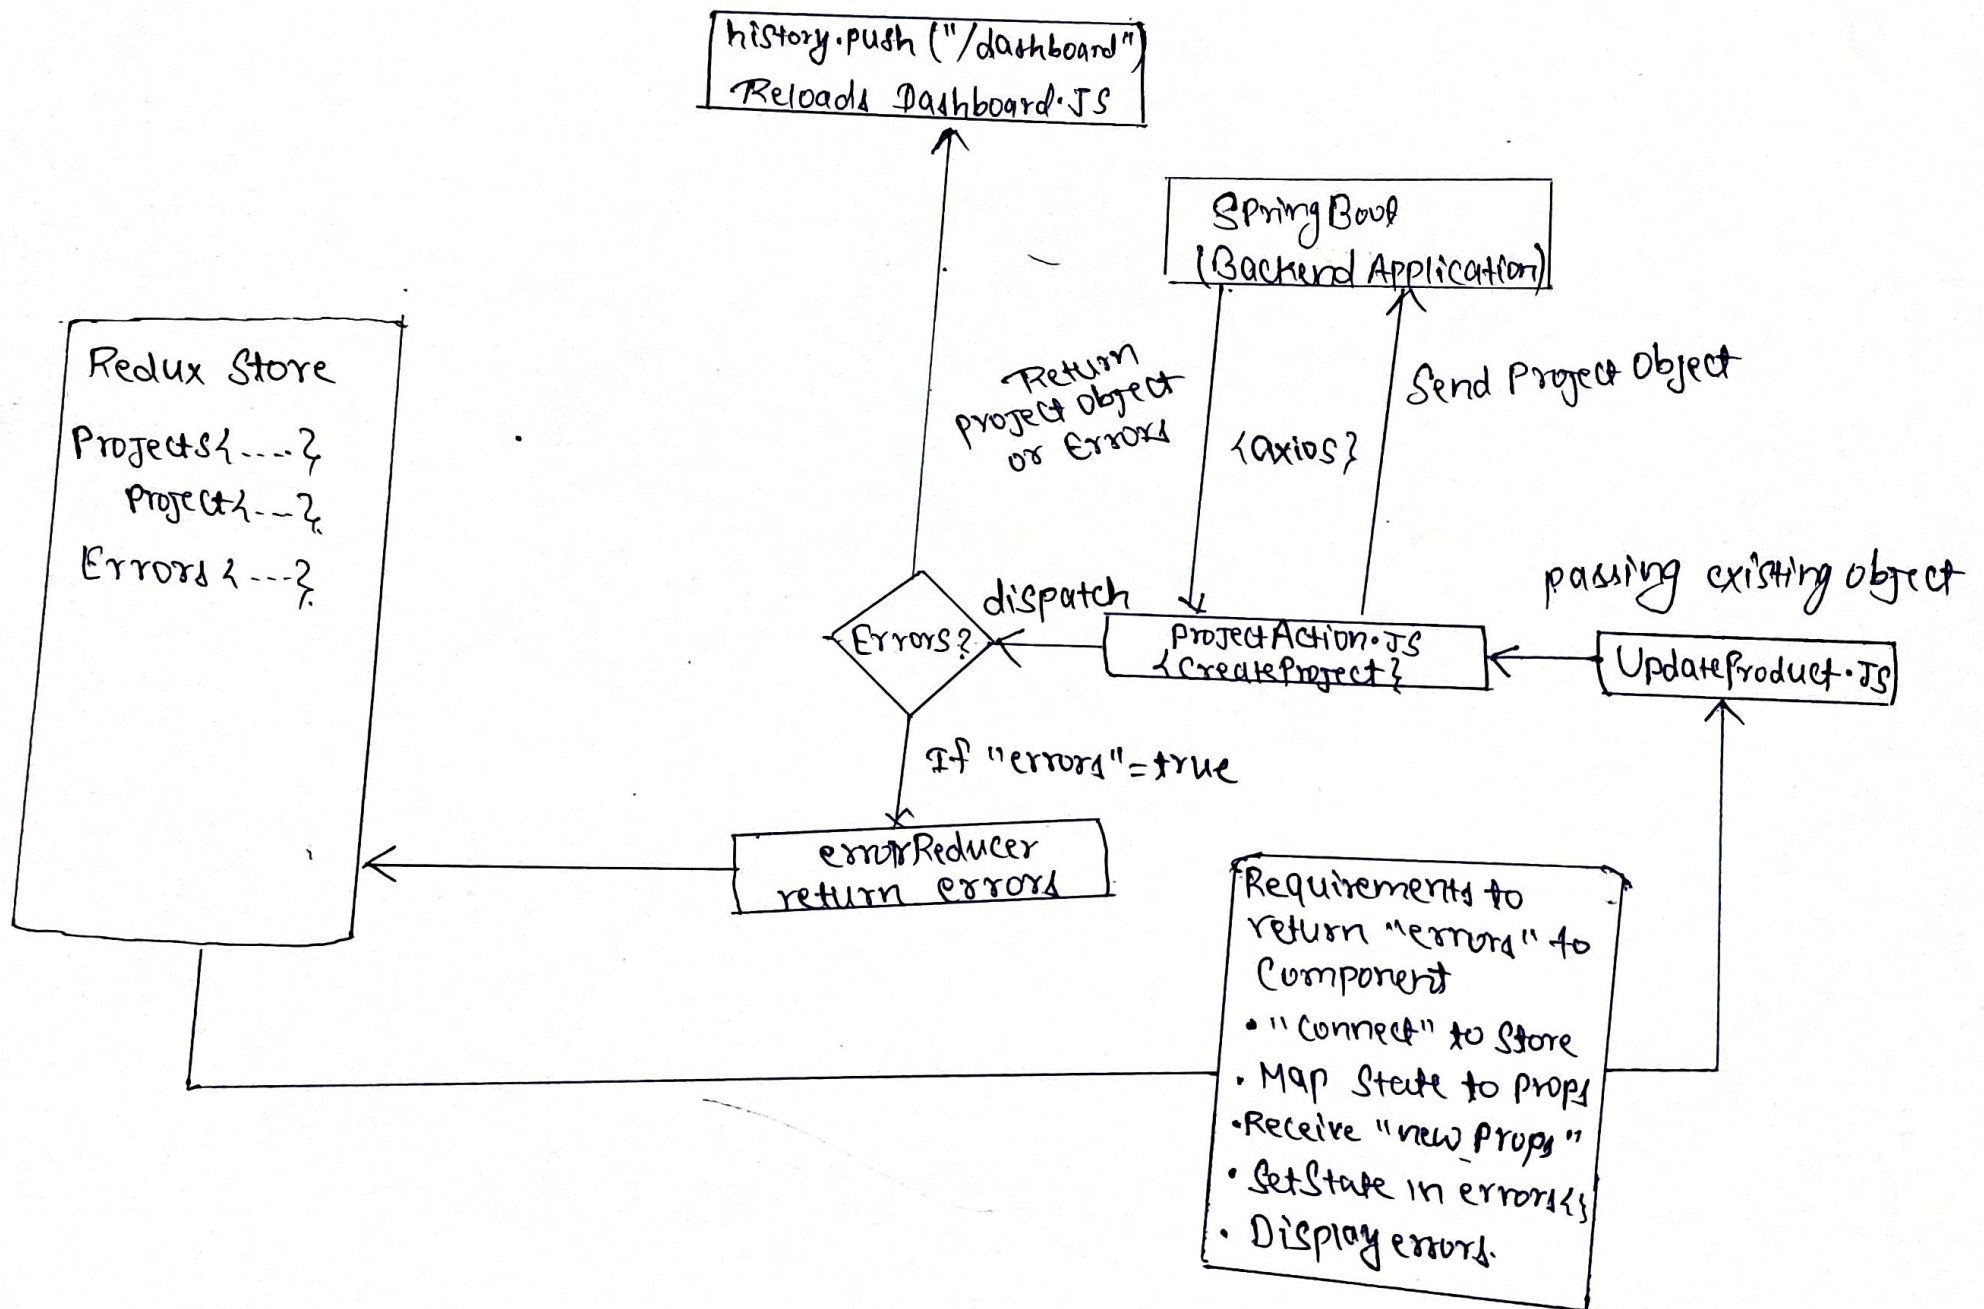 history.push ("/dashboard")
Reloads Dashboard.JS
Spring Boot
(Backend Application)
Redux Store
Projects{----}
Project{---}
Errors{---}
Return
project object
or Errors
{axios}
Send Project Object
passing existing object
dispatch
Errors?
ProjectAction.JS
{CreateProject}
UpdateProduct.JS
If "errors"=true
errorReducer
return errors
Requirements to
return "errors" to
Component
• "Connect" to Store
• Map State to props
• Receive "new Props"
• SetState in errors{}
• Display errors.